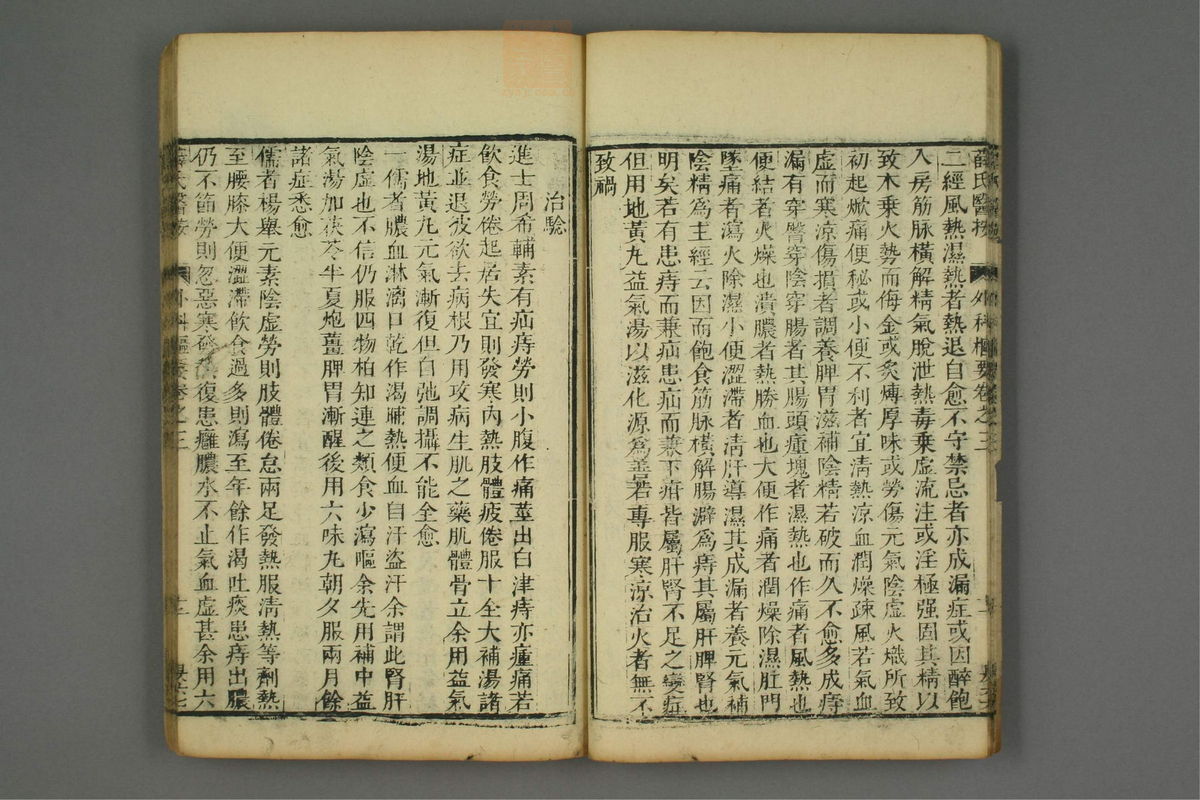 薛氏醫按 外科樞要卷之三
二經風熱濕熱者熱退自愈不守禁忌者亦成漏症或因醉飽
入房筋脉橫解精氣脫泄熱毒乗虛流注或淫極强固其精以
致木乗火勢而侮金或炙煿厚味或勞傷元氣陰虛火熾所致
初起焮痛便秘或小便不利者宜清熱涼血潤燥疎風若氣血
虛而寒涼傷損者調養脾胃滋補陰精若破而久不愈多成痔
漏有穿臀穿陰穿腸者其腸頭腫塊者濕熱也作痛者風熱也
便結者火燥也潰膿者熱勝血也大便作痛者潤燥除濕肛門
墜痛者瀉火除濕小便澀滯者清肝導濕其成漏者養元氣補
陰精爲主經云因而飽食筋脉橫解腸澼爲痔其屬肝脾腎也
明矣若有患痔而兼疝患疝而兼下疳皆屬肝腎不足之變症
但用地黃丸益氣湯以滋化源爲善若專服寒涼治火者無不
致禍
治驗
進士周希輔素有疝痔勞則小腹作痛莖出白津痔亦腫痛若
飲食勞倦起居失宜則發寒內熱肢體疲倦服十全大補湯諸
症並退彼欲去病根乃用攻病生肌之藥肌體骨立余用益氣
湯地黃丸元氣漸復但自弛調攝不能全愈
一儒者膿血淋漓口乾作渴晡熱便血自汗盜汗余謂此腎肝
陰虛也不信仍服四物柏知連之類食少瀉嘔余先用補中益
氣湯加茯苓半夏炮薑脾胃漸醒後用六味丸朝夕服兩月餘
諸症悉愈
儒者楊舉元素陰虛勞則肢體倦怠兩足發熱服清熱等劑熱
至腰膝大便澀滯飲食過多則瀉至年餘作渴吐痰患痔出膿
仍不節勞則忽惡寒發熱復患癰膿水不止氣血虛甚余用六
薛氏醫按 外科樞要卷之三